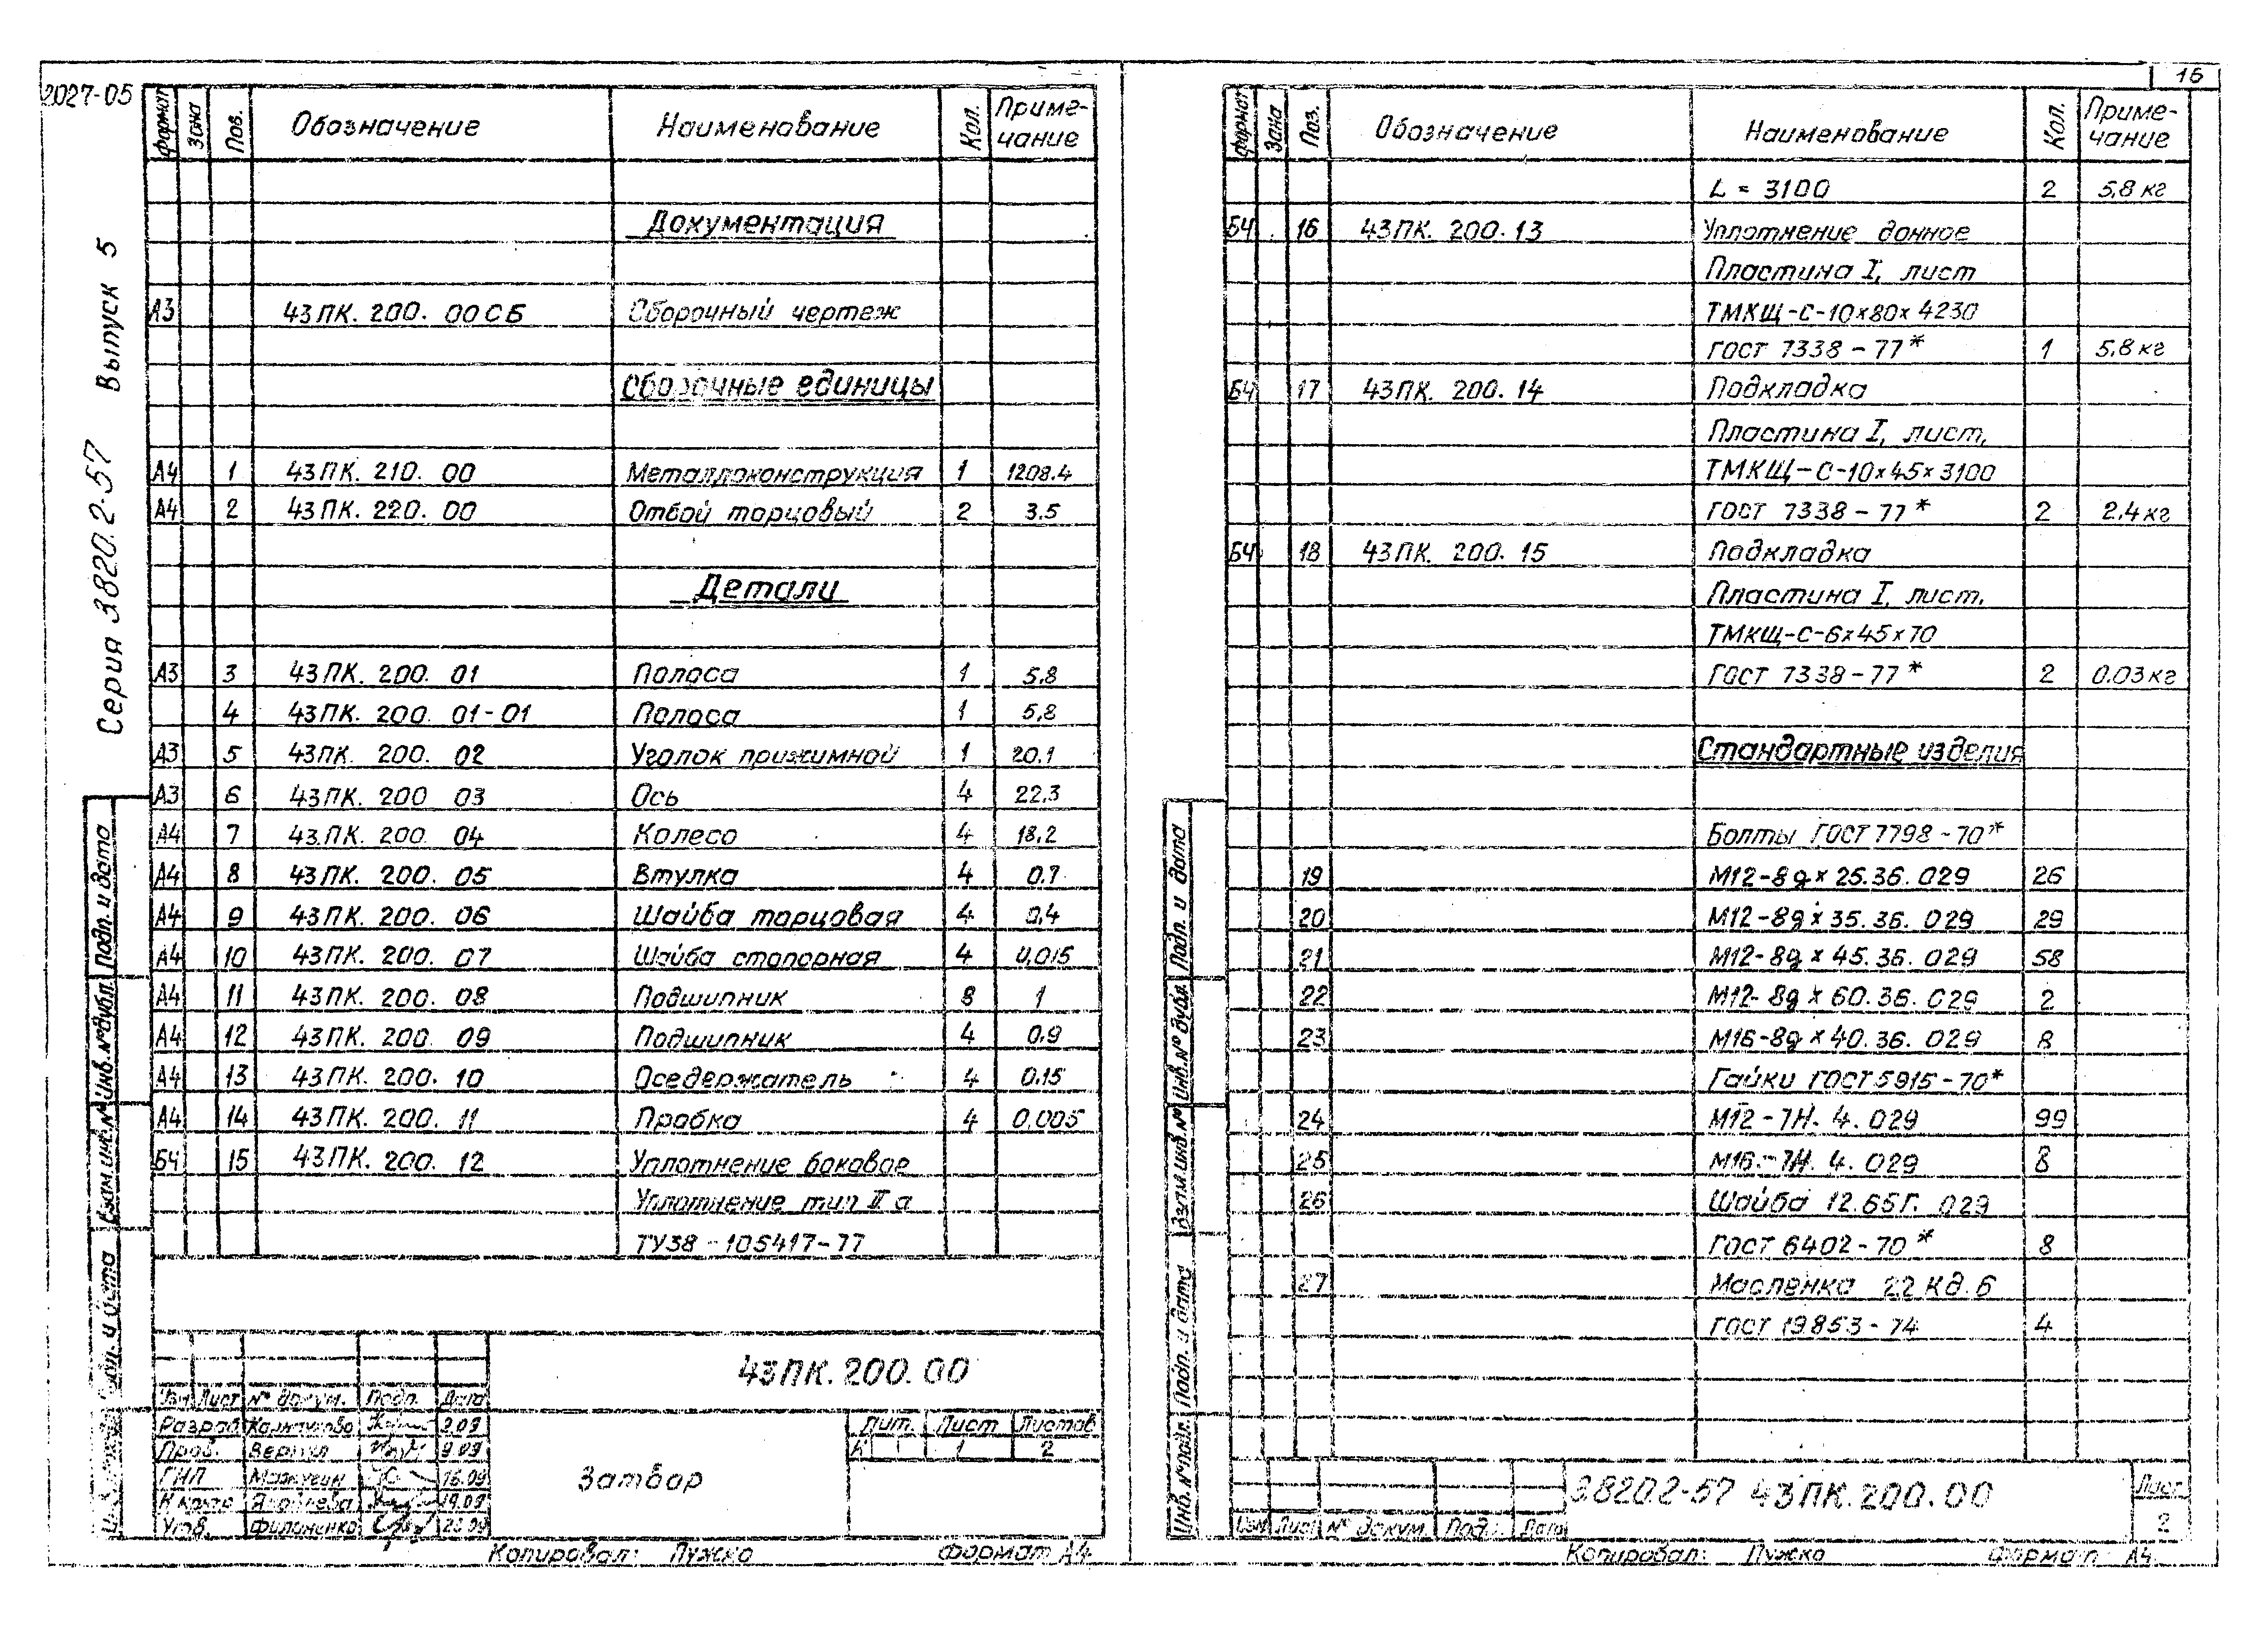 2027-05
Серия 3820.2-57 Выпуск 5
Формат Зона Поз. Обозначение Наименование Кол. Приме-
чание
Документация
А3 43ПК. 200. 00СБ Сборочный чертеж
Сборочные единицы
А4 1 43ПК. 210. 00 Металлоконструкция 1 1208.4
А4 2 43ПК. 220. 00 Отбой торцовый 2 3.5
Детали
А3 3 43ПК. 200. 01 Полоса 1 5.8
4 43ПК. 200. 01-01 Полоса 1 5,8
А3 5 43ПК. 200. 02 Уголок прижимной 1 20.1
А3 6 43ПК. 200 03 Ось 4 22.3
А4 7 43ПК. 200. 04 Колесо 4 18,2
А4 8 43ПК. 200. 05 Втулка 4 0.7
А4 9 43ПК. 200. 06 Шайба торцовая 4 0,4
А4 10 43ПК. 200. 07 Шайба стопорная 4 0,015
А4 11 43ПК. 200. 08 Подшипник 8 1
А4 12 43ПК. 200. 09 Подшипник 4 0.9
А4 13 43ПК. 200. 10 Оседержатель 4 0.15
А4 14 43ПК. 200. 11 Пробка 4 0.005
БЧ 15 43ПК. 200. 12 Уплотнение боковое
Уплотнение тип II а
ТУ38-105417-77
43ПК. 200. 00
Изм Лист № докум. Подп. Дата
Разраб 9.09
Пров. 9.09
ГИП 16.09
Н.контр Яковлева 19.09
Утв. Филоненко 26.09
Затвор
Лит. Лист Листов
1 2
Копировал: Пужко Формат А4
Подп. и дата
Инв. № дубл.
Взам. инв. №
Подп. и дата
16
Формат Зона Поз. Обозначение Наименование Кол. Приме-
чание
L = 3100 2 5,8 кг
БЧ 16 43ПК. 200. 13 Уплотнение донное
Пластина I, лист
ТМКЩ-С-10х80х4230
ГОСТ 7338-77* 1 5,8 кг
БЧ 17 43ПК. 200. 14 Подкладка
Пластина I, лист,
ТМКЩ-С-10х45х3100
ГОСТ 7338-77* 2 2,4 кг
БЧ 18 43ПК. 200. 15 Подкладка
Пластина I, лист.
ТМКЩ-С-6х45х70
ГОСТ 7338-77* 2 0.03 кг
Стандартные изделия
Болты ГОСТ 7798-70*
19 М12-8gх25.36.029 26
20 М12-8gх35.36.029 29
21 М12-8gх45.36.029 58
22 М12-8gх60.36.029 2
23 М16-8gх40.36.029 8
Гайки ГОСТ 5915-70*
24 М12-7Н. 4. 029 99
25 М16-7Н. 4. 029 8
26 Шайба 12.65Г. 029
ГОСТ 6402-70* 8
27 Масленка 22 кд.6
ГОСТ 19853-74 4
3.820.2-57 43ПК.200.00
Лист
2
Изм Лист № докум. Подп. Дата
Копировал: Пужко Формат А4
Подп. и дата
Инв. № дубл.
Взам. инв. №
Подп. и дата
Инв. № подл.